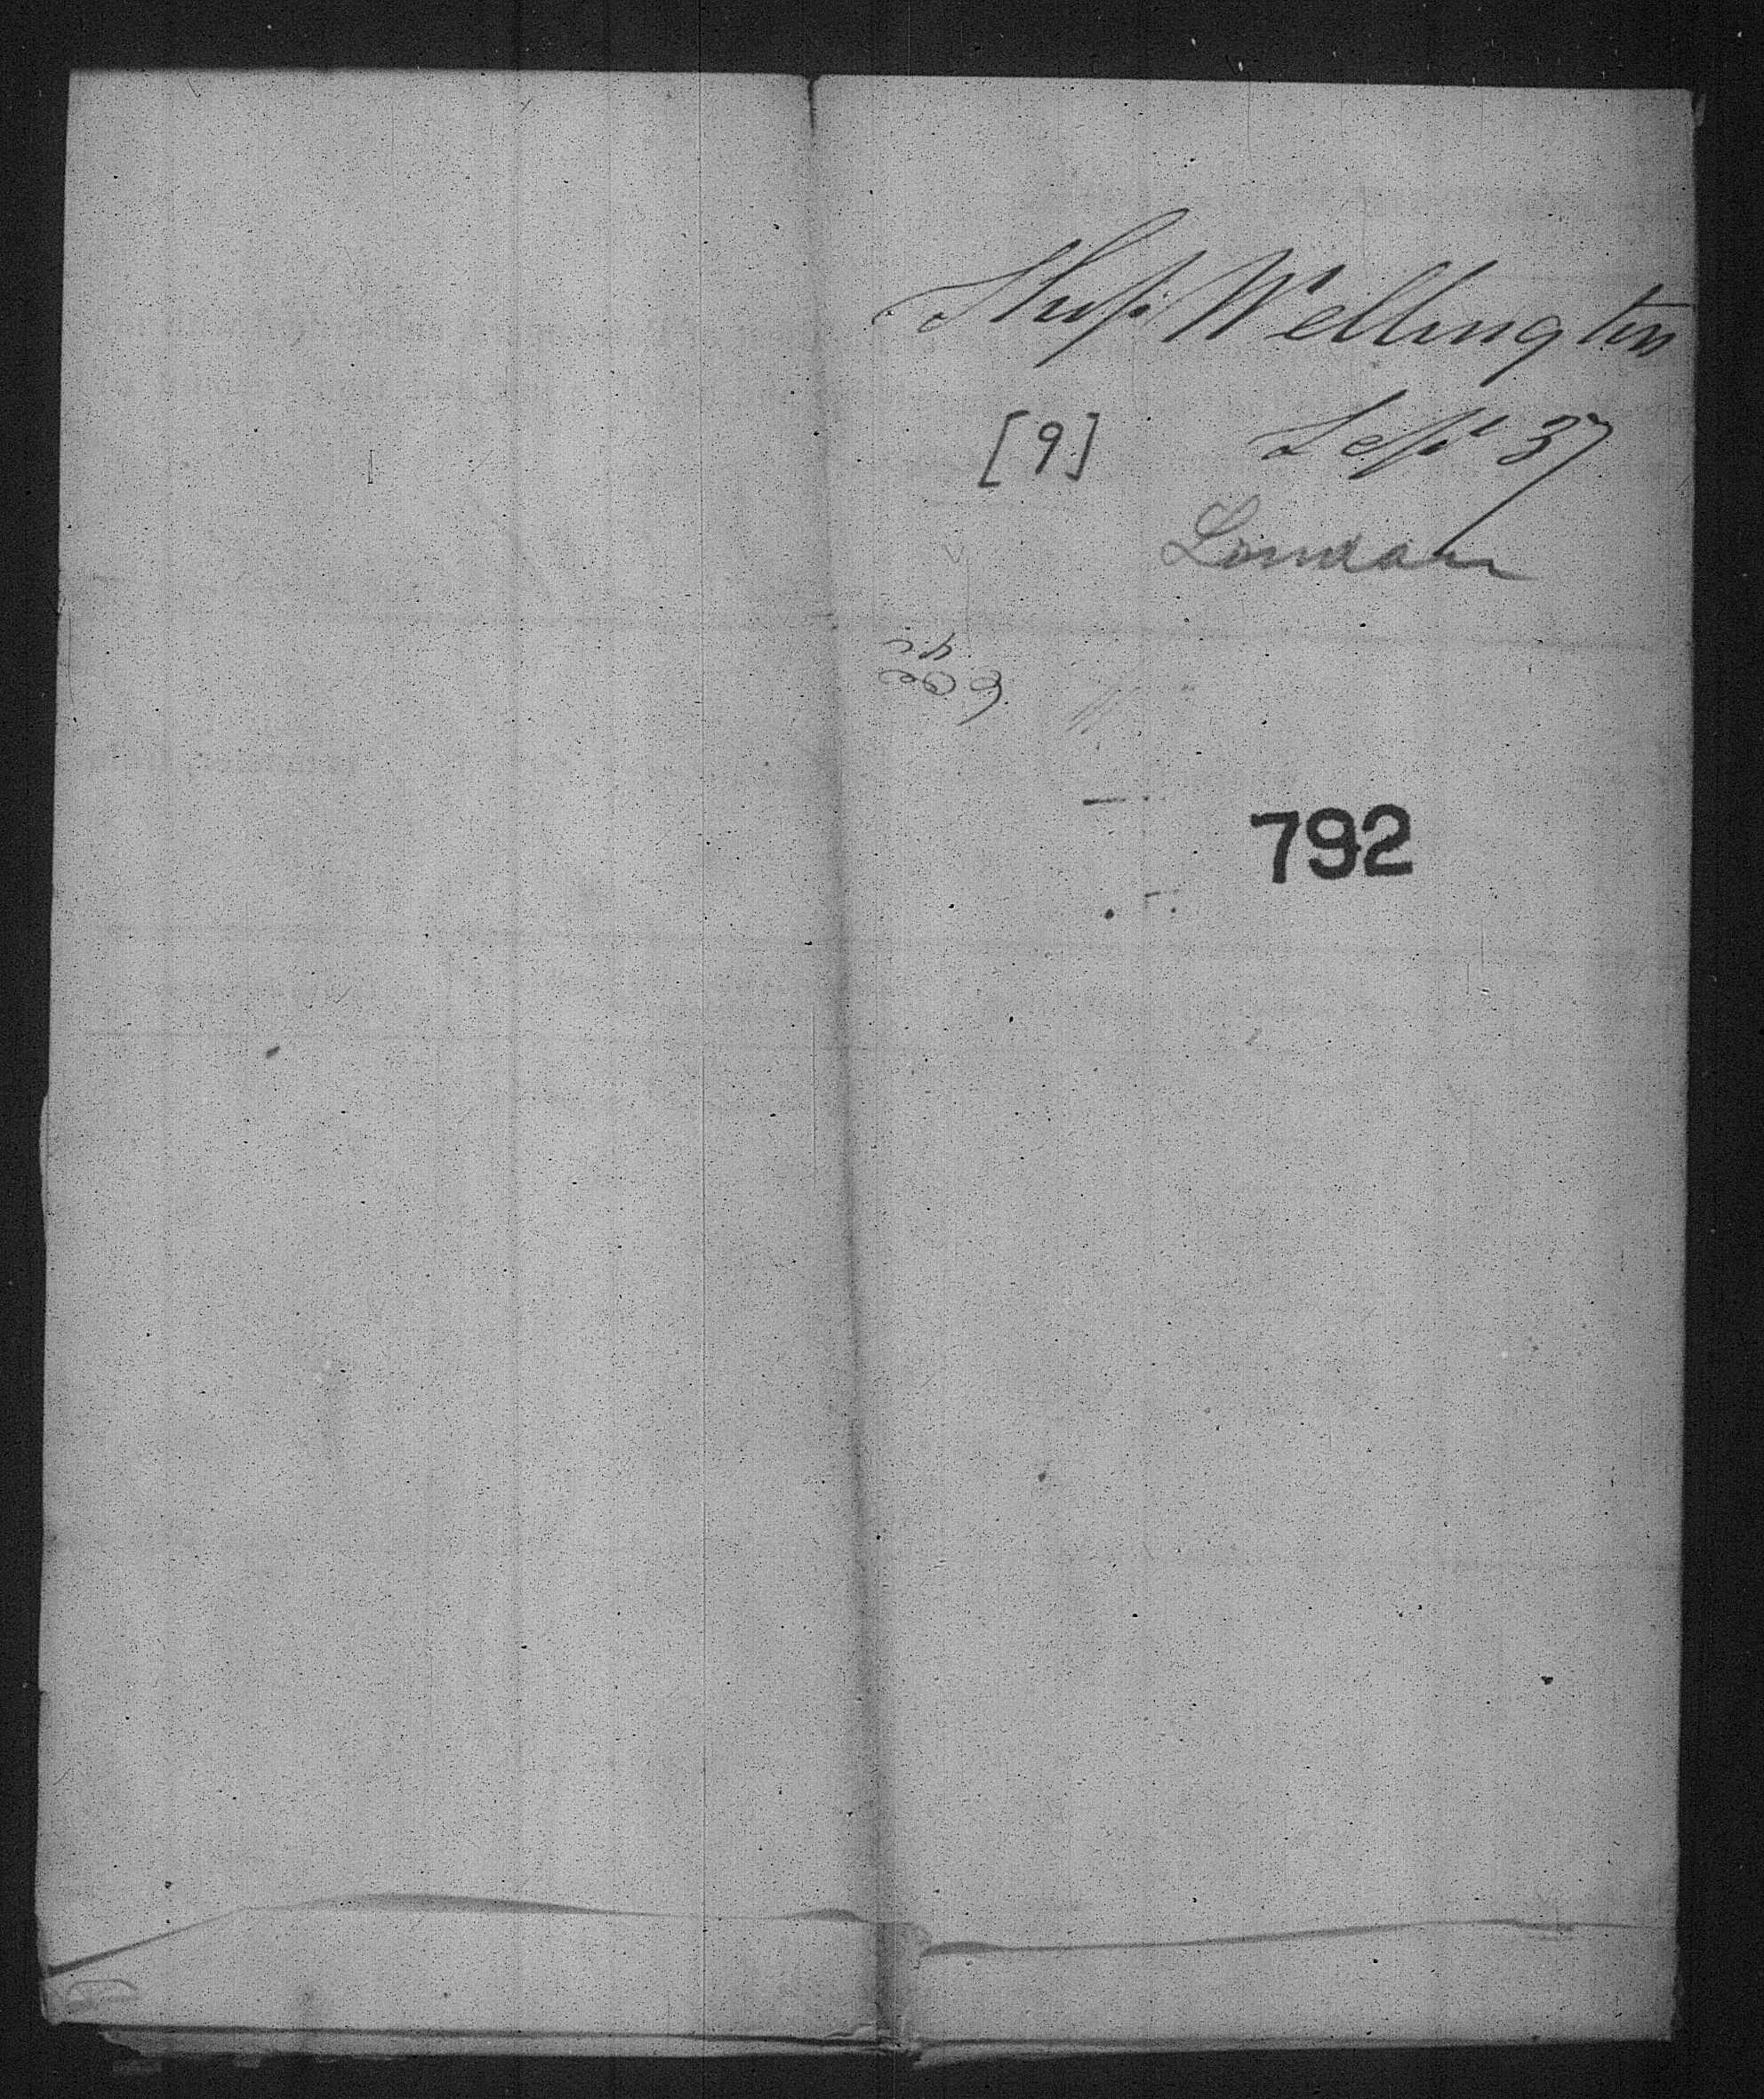 Ship Wellington
[9] Sept 37
London
792